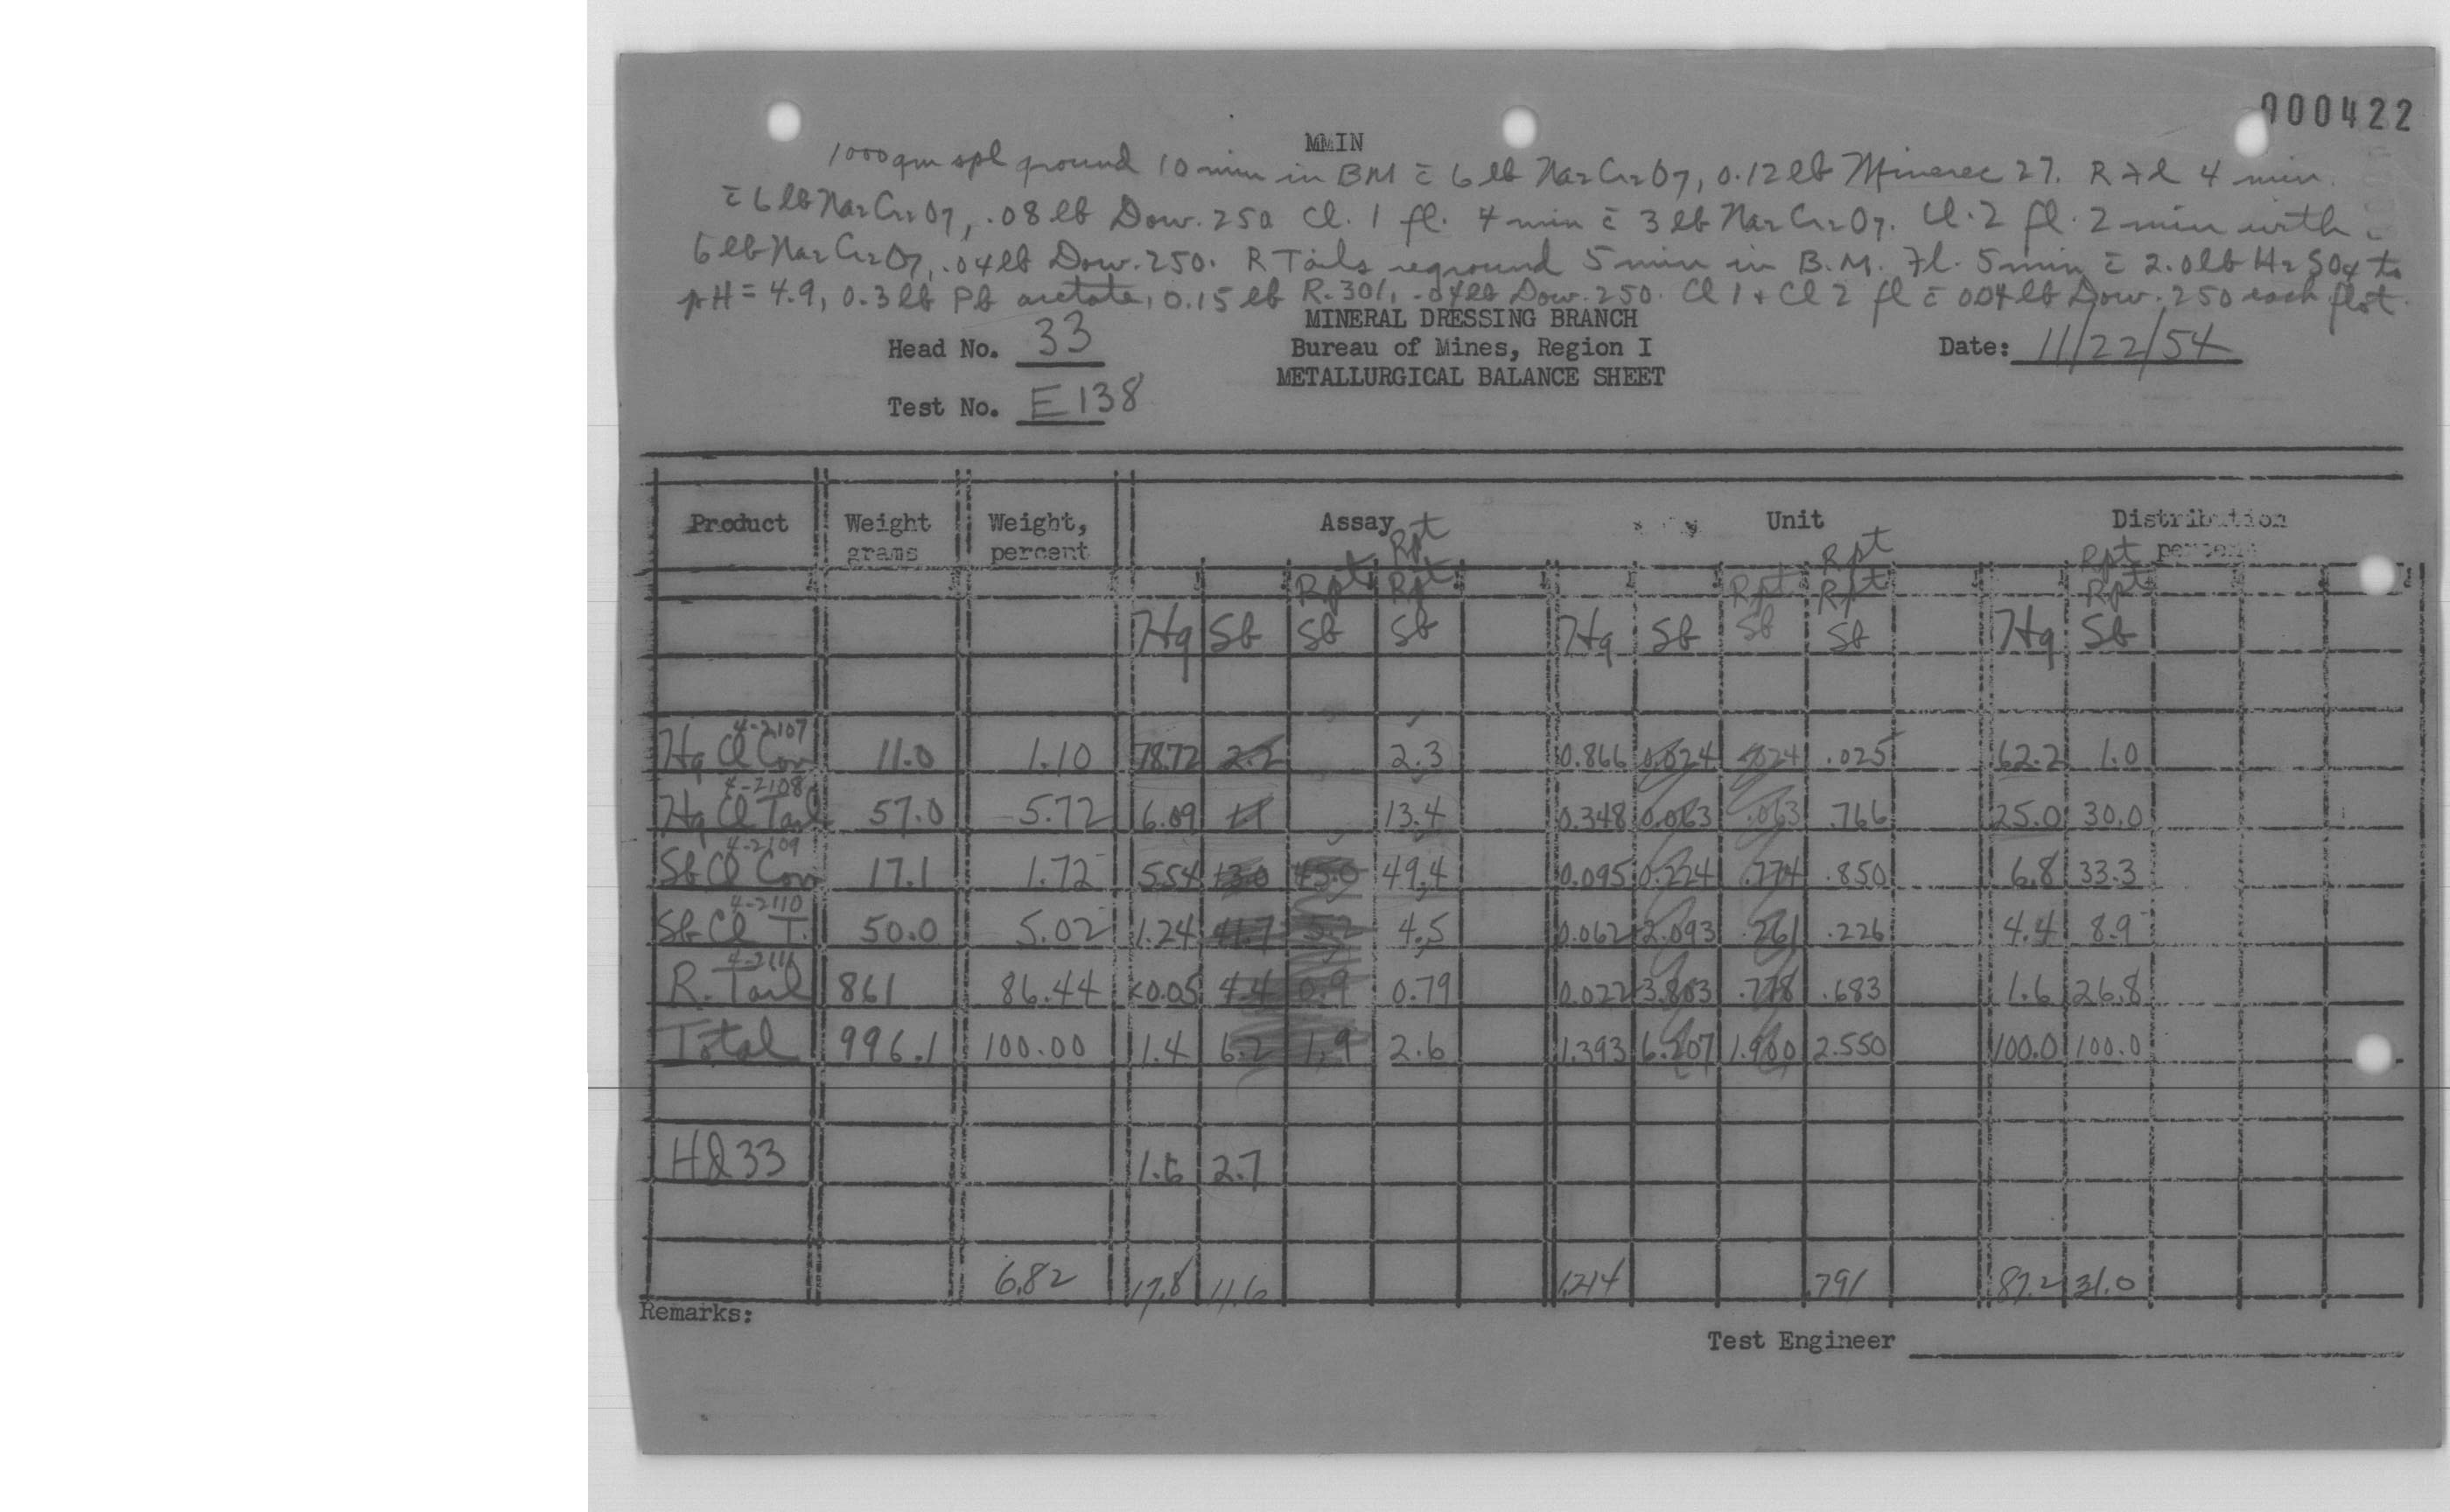 000422
MMIN
1000 gm spl ground 10 min in BM c̄ 6 lb Na2Cr2O7, 0.12 lb Minerec 27. R Fl 4 min.
c̄ 6 lb Na2Cr2O7, .08 lb Dow. 250 Cl. 1 fl. 4 min c̄ 3 lb Na2Cr2O7. Cl. 2 fl. 2 min with
6 lb Na2Cr2O7, .04 lb Dow. 250. R Tails reground 5 min in B.M. Fl. 5 min c̄ 2.0 lb H2SO4 to
pH = 4.9, 0.3 lb Pb acetate, 0.15 lb R. 301, .04 lb Dow. 250. Cl 1 + Cl 2 fl c̄ 0.04 lb Dow. 250 each flot.
MINERAL DRESSING BRANCH
Head No. 33 Bureau of Mines, Region I Date: 11/22/54
METALLURGICAL BALANCE SHEET
Test No. E138
Product Weight grams Weight, percent Assay Unit Distribution percent
Rpt Rpt Rpt
Rpt Rpt Rpt Rpt Rpt
Hg Sb Sb Sb Hg Sb Sb Sb Hg Sb
4-2107
Hg Cl Con 11.0 1.10 78.72 2.2 2.3 0.866 0.024 .024 .025 62.2 1.0
4-2108
Hg Cl Tail 57.0 5.72 6.09 1.1 13.4 0.348 0.063 .063 .766 25.0 30.0
4-2109
Sb Cl Con 17.1 1.72 5.54 13.0 45.0 49.4 0.095 0.224 .774 .850 6.8 33.3
4-2110
Sb Cl T. 50.0 5.02 1.24 41.7 5.2 4.5 0.062 2.093 .261 .226 4.4 8.9
4-2111
R. Tail 861 86.44 <0.05 4.4 0.9 0.79 0.022 3.803 .778 .683 1.6 26.8
Total 996.1 100.00 1.4 6.2 1.9 2.6 1.393 6.207 1.900 2.550 100.0 100.0
Hd 33 1.6 2.7
6.82 17.8 11.6 1.214 .791 87.2 31.0
Remarks:
Test Engineer